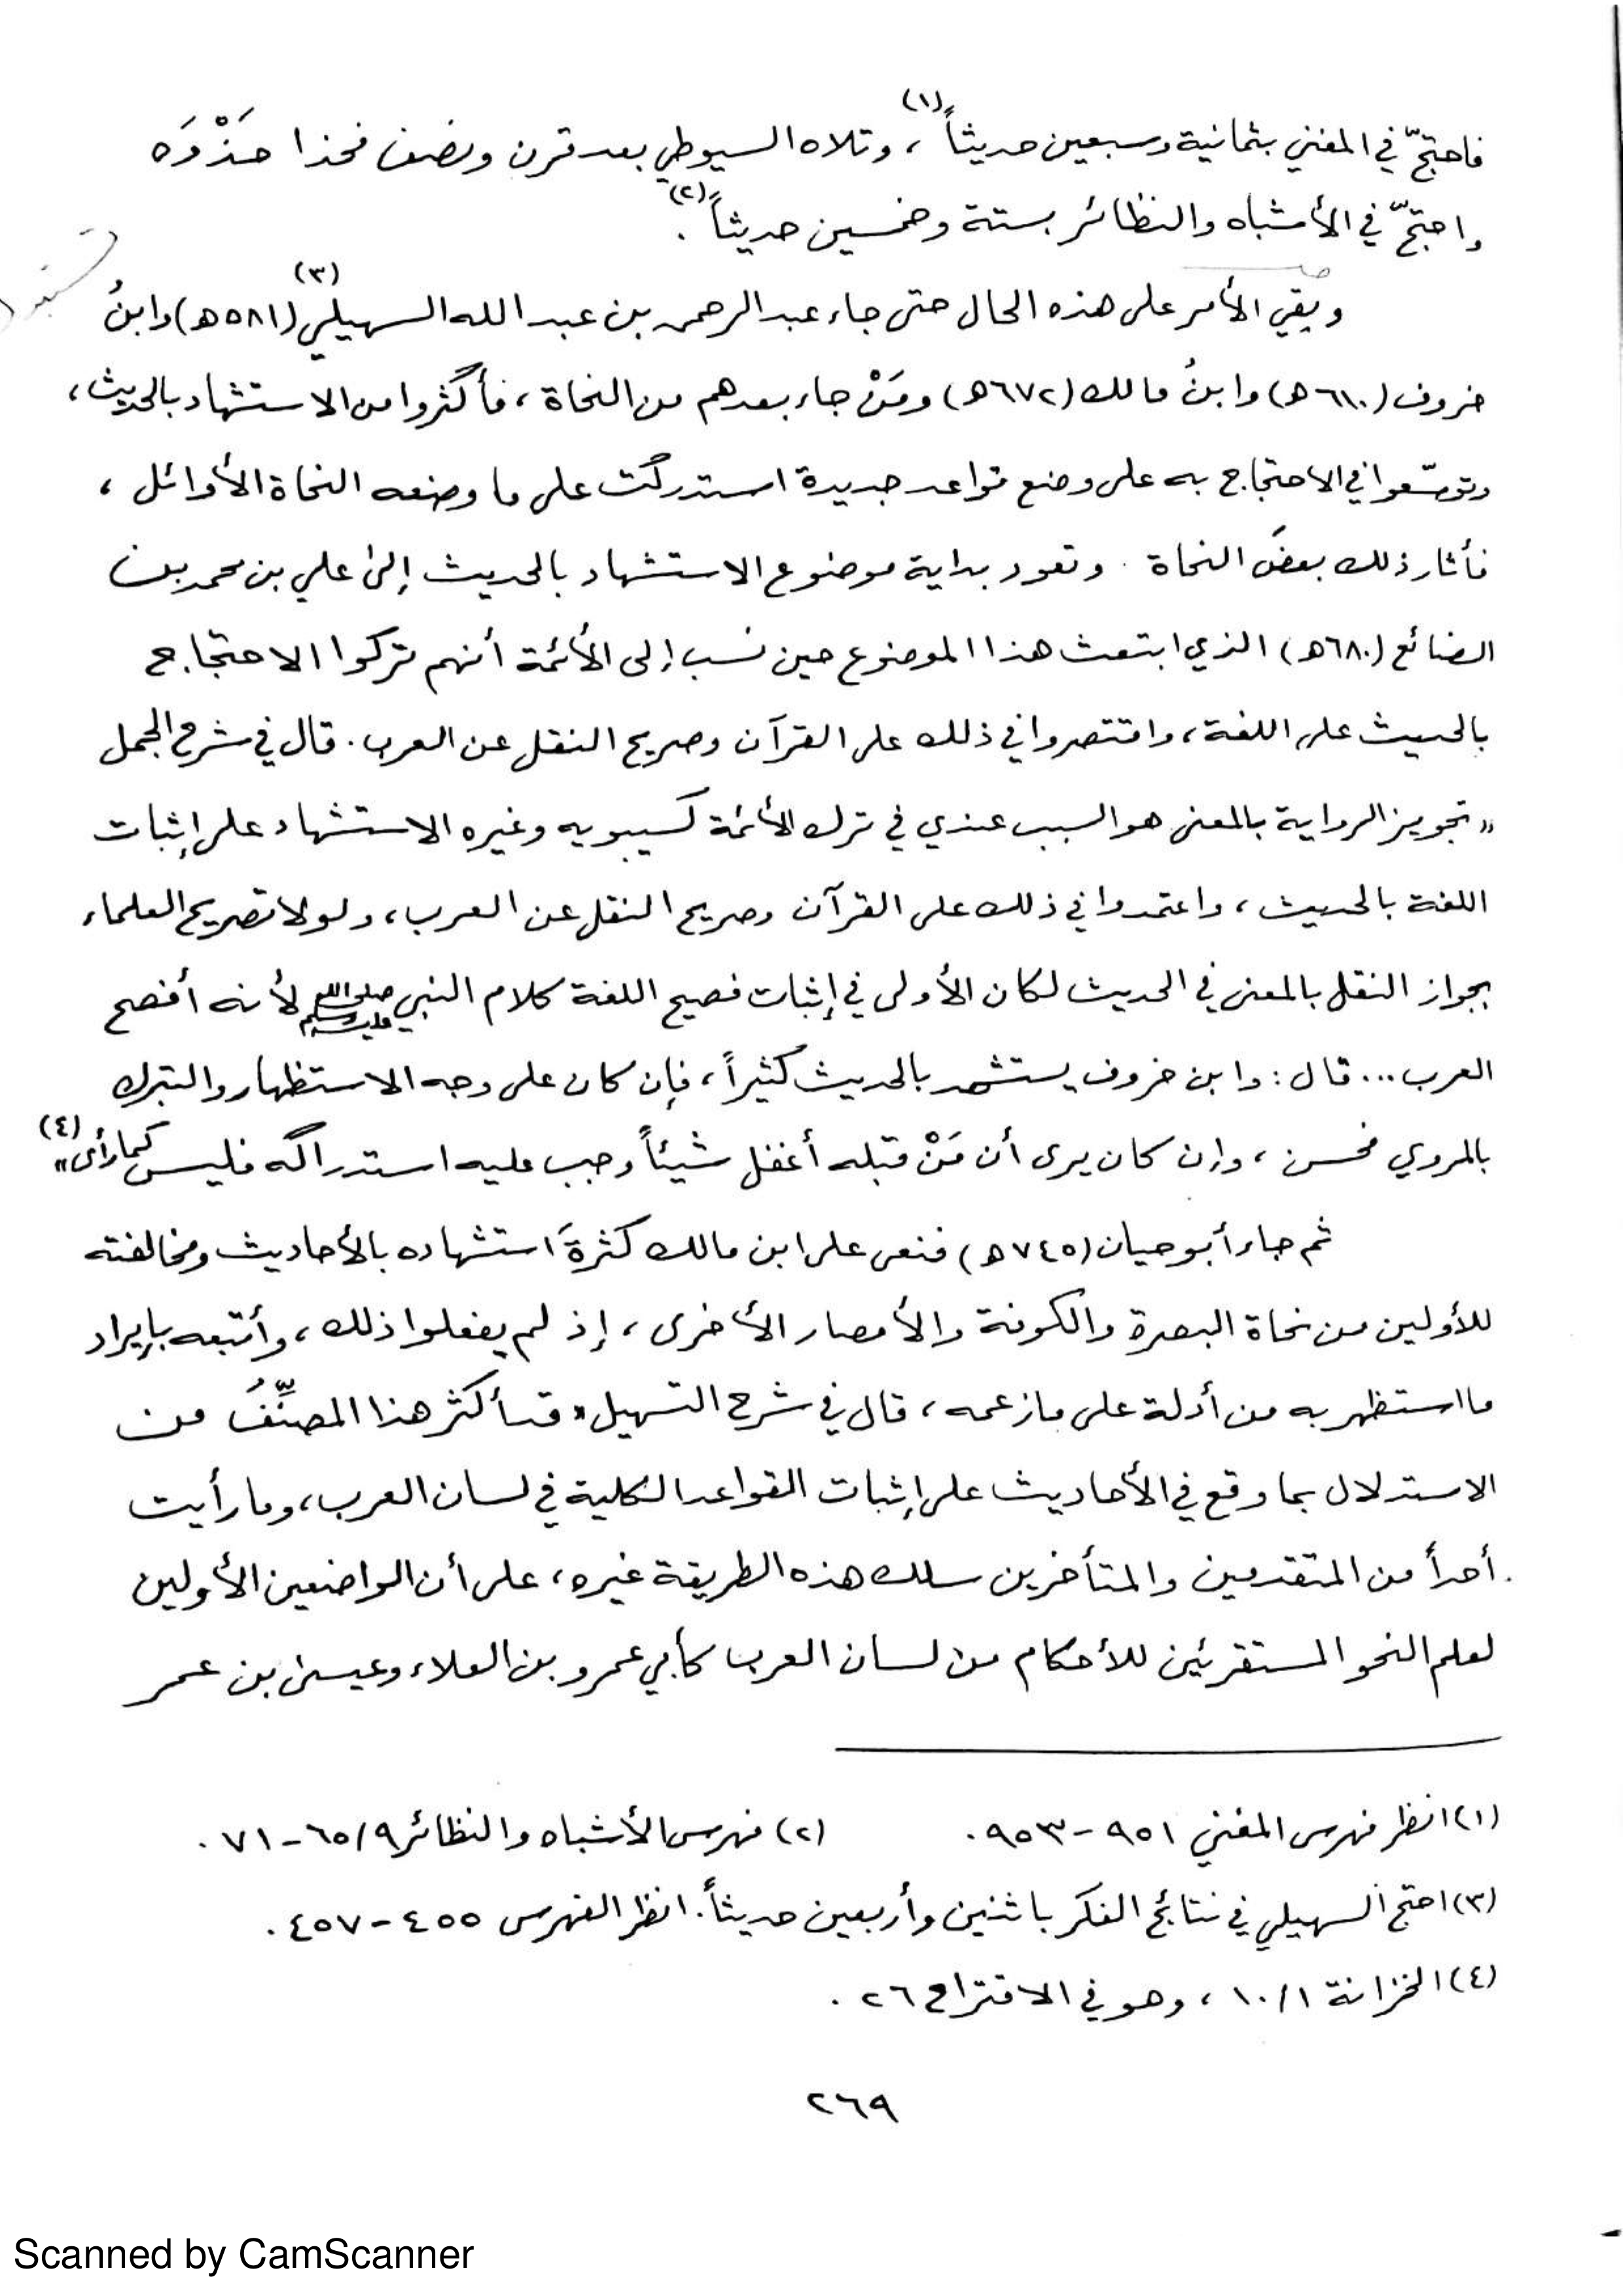 فاحتجّ في المغني بثمانية وسبعين حديثاً(١)، وتلاه السيوطي بعد قرن ونصف فحذا حَذْوَه
واحتجّ في الأشباه والنظائر بستة وخمسين حديثاً(٢).
وبقي الأمر على هذه الحال حتى جاء عبد الرحمن بن عبد الله السهيليُّ(٣) (٥٨١ه) وابنُ
خروف (٦١٠ه) وابنُ مالك (٦٧٢ه) ومَنْ جاء بعدهم من النحاة، فأكثروا من الاستشهاد بالحديث،
وتوسّعوا في الاحتجاج به على وضع قواعد جديدة استدركت على ما وضعه النحاة الأوائل،
فأثار ذلك بعضَ النحاة. وتعود بداية موضوع الاستشهاد بالحديث إلى علي بن محمد بن
الضائع (٦٨٠ه) الذي ابتعث هذا الموضوع حين نسب إلى الأئمة أنهم تركوا الاحتجاج
بالحديث على اللغة، واقتصروا في ذلك على القرآن وصريح النقل عن العرب. قال في شرح الجمل
«تجويز الرواية بالمعنى هو السبب عندي في ترك الأئمة كسيبويه وغيره الاستشهاد على إثبات
اللغة بالحديث، واعتمدوا في ذلك على القرآن وصريح النقل عن العرب، ولولا تصريح العلماء
بجواز النقل بالمعنى في الحديث لكان الأولى في إثبات فصيح اللغة كلام النبي صلى الله عليه وسلم لأنه أفصح
العرب... قال: وابن خروف يستشهد بالحديث كثيراً، فإن كان على وجه الاستظهار والتبرك
بالمروي فحسن، وإن كان يرى أن مَنْ قبله أغفل شيئاً وجب عليه استدراكه فليس كما رأى»(٤)
ثم جاء أبو حيان (٧٤٥ه) فنعى على ابن مالك كثرةَ استشهاده بالأحاديث ومخالفته
للأولين من نحاة البصرة والكوفة والأمصار الأخرى، إذ لم يفعلوا ذلك، وأتبعه بإيراد
ما استظهر به من أدلة على ما زعمه، قال في شرح التسهيل «قد أكثر هذا المصنِّفُ من
الاستدلال بما وقع في الأحاديث على إثبات القواعد الكلية في لسان العرب، وما رأيت
أحداً من المتقدمين والمتأخرين سلك هذه الطريقة غيره، على أن الواضعين الأولين
لعلم النحو المستقرئين للأحكام من لسان العرب كأبي عمرو بن العلاء وعيسى بن عمر
(١) انظر فهرس المغني ٩٥١-٩٥٣.
(٢) فهرس الأشباه والنظائر ٦٥/٩-٧١.
(٣) احتج السهيلي في نتائج الفكر باثنين وأربعين حديثاً. انظر الفهرس ٤٥٥-٤٥٧.
(٤) الخزانة ١٠/١، وهو في الاقتراح ٢٦.
٢٦٩
Scanned by CamScanner